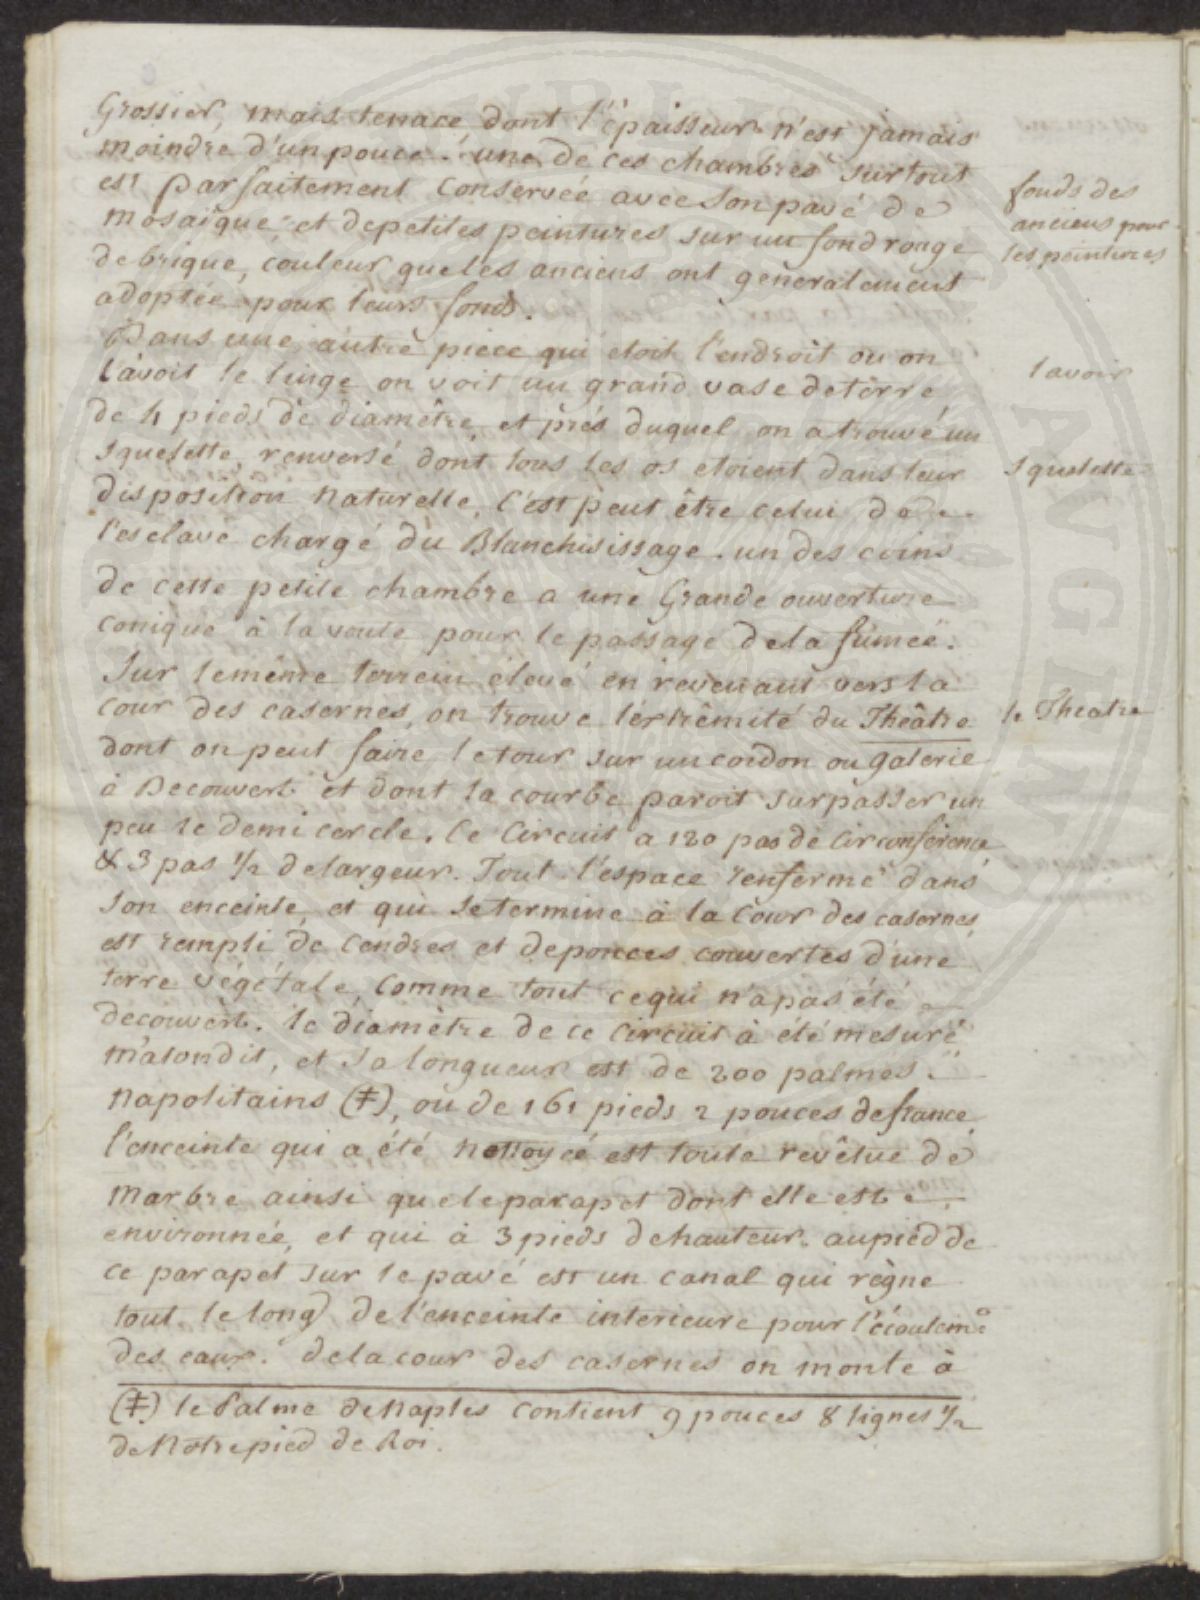 Grossier, mais tenace dont l'épaisseur n'est jamais
moindre d'un pouce. une de ces chambres surtout
est parfaitement conservée avec son pavé de
mosaïque, et de petites peintures sur un fond rouge
de brique, couleur que les anciens ont generalement
adoptée pour leurs fonds.
fonds des
anciens pour
les peintures
Dans une autre piece qui étoit l'endroit ou on
lavoit le linge on voit un grand vase de terre
lavoir
de 4 pieds de diamêtre, et près duquel on a trouvé un
squelette, renversé dont tous les os etoient dans leur
squelette
disposition naturelle, c'est peut être celui de
l'esclave chargé du Blanchisissage. un des coins
de cette petite chambre a une Grande ouverture
conique à la voute pour le passage de la fumeé.
Sur le même terrein élevé en revenant vers la
cour des casernes, on trouve l'extrêmité du Théâtre
le Theatre
dont on peut faire le tour sur un cordon ou galerie
à Decouvert et dont la courbe paroit surpasser un
peu le demi cercle. Ce Circuit a 120 pas de circonférence
& 3 pas 1/2 de largeur. Tout l'espace renfermé dans
son enceinte, et qui se termine à la Cour des casernes,
est rempli de Cendres et de ponces couvertes d'une
terre végétale, comme tout ce qui n'a pas été
decouvert. le diamètre de ce Circuit à été mesuré
m'atondit, et sa longueur est de 200 palmes
Napolitains (‡), ou de 161 pieds 2 pouces de france,
l'enceinte qui a été Nettoyeé est toute revêtue de
Marbre ainsi que le parapet dont elle est
environnée, et qui à 3 pieds de hauteur. au pied de
ce parapet sur le pavé est un canal qui règne
tout le long de l'enceinte interieure pour l'écoulem.o
des eaux. de la cour des casernes on monte à
(‡) le Palme de Naples contient 9 pouces 8 lignes 1/2
de Notre pied de Roi.